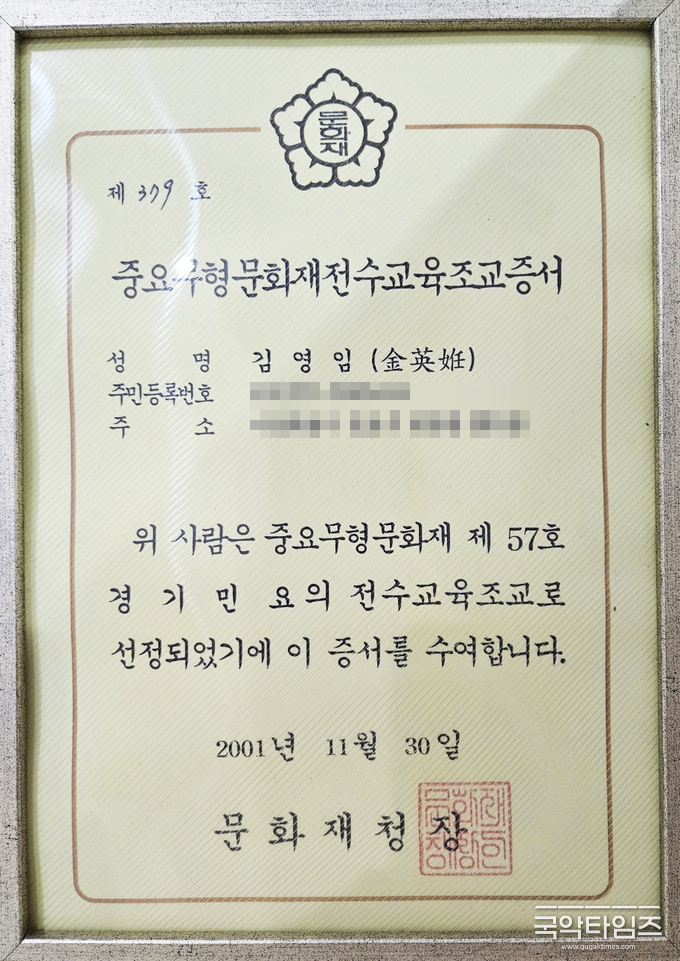 문화재
제 379 호
중요무형문화재전수교육조교증서
성 명 김 영 임 (金英姙)
주민등록번호
주 소
위 사람은 중요무형문화재 제 57호
경 기 민 요의 전수교육조교로
선정되었기에 이 증서를 수여합니다.
2001년 11월 30일
문 화 재 청 장
국악타임즈
www.gugaktimes.com